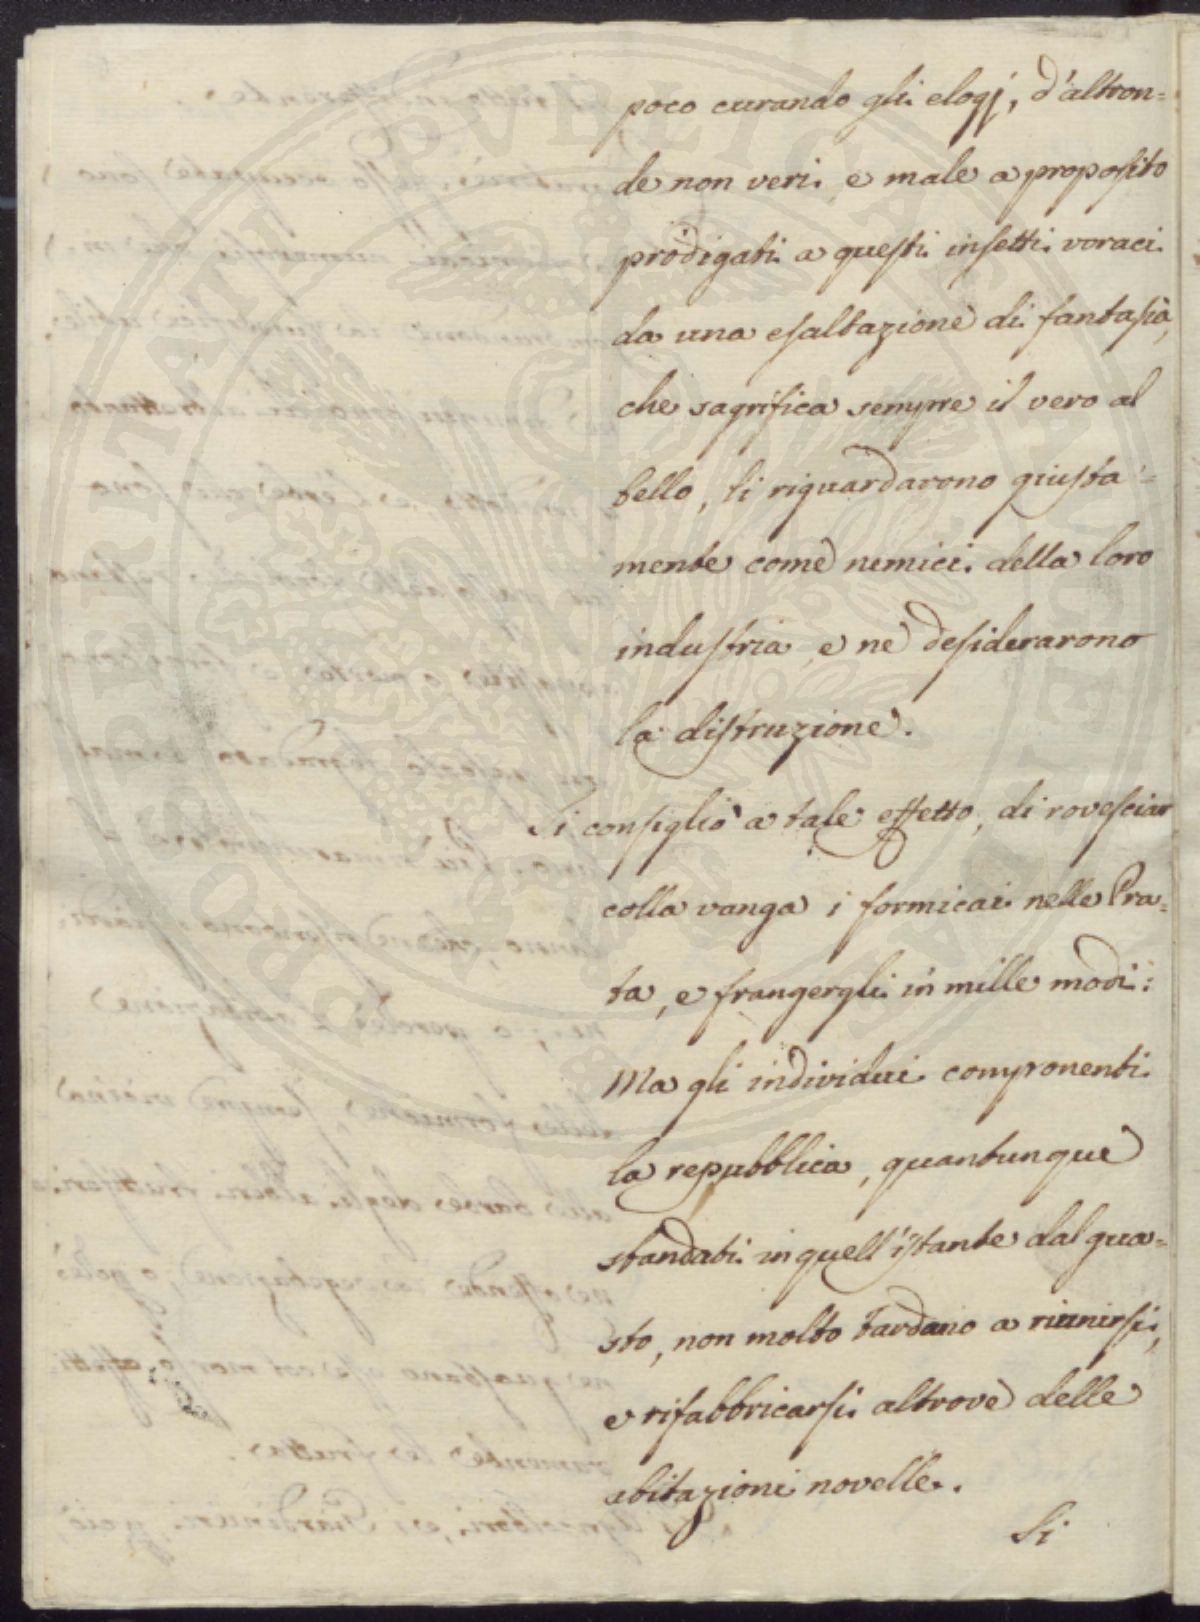 poco curando gli elogj, d'altron=
de non veri, e male a proposito
prodigati a questi insetti voraci
da una esaltazione di fantasia,
che sagrifica sempre il vero al
bello, li riguardarono giusta=
mente come nemici della loro
industria, e ne desiderarono
la distruzione.
Si consigliò a tale effetto, di rovesciar
colla vanga i formicai nelle Pra=
ta, e frangergli in mille modi:
Ma gli individui componenti
la repubblica, quantunque
sbandati in quell'istante dal gua=
sto, non molto tardano a riunirsi,
e rifabbricarsi altrove delle
abitazioni novelle.
Si
PROSPERITATI PVBLICAE AVGENDAE